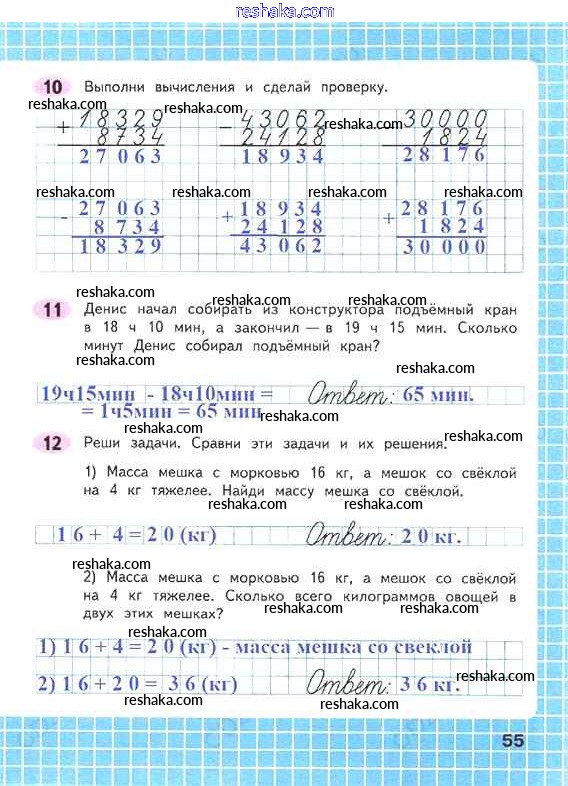 reshaka.com
10 Выполни вычисления и сделай проверку.
reshaka.com reshaka.com reshaka.com
+ 18329 - 43062 30000
8734 24128 1824
reshaka.com
27063 18934 28176
reshaka.com reshaka.com reshaka.com
- 27063 + 18934 + 28176
8734 24128 1824
18329 43062 30000
reshaka.com reshaka.com reshaka.com
reshaka.com reshaka.com
11 Денис начал собирать из конструктора подъёмный кран
в 18 ч 10 мин, а закончил — в 19 ч 15 мин. Сколько
минут Денис собирал подъёмный кран?
reshaka.com reshaka.com reshaka.com
19ч15мин - 18ч10мин = Ответ: 65 мин.
= 1ч5мин = 65 мин
reshaka.com reshaka.com
12 Реши задачи. Сравни эти задачи и их решения.
reshaka.com
1) Масса мешка с морковью 16 кг, а мешок со свёклой
на 4 кг тяжелее. Найди массу мешка со свёклой.
reshaka.com reshaka.com
16 + 4 = 20 (кг) Ответ: 20 кг.
reshaka.com reshaka.com
2) Масса мешка с морковью 16 кг, а мешок со свёклой
на 4 кг тяжелее. Сколько всего килограммов овощей в
двух этих мешках?
reshaka.com reshaka.com
1) 16 + 4 = 20 (кг) - масса мешка со свеклой
reshaka.com
2) 16 + 20 = 36 (кг) Ответ: 36 кг.
reshaka.com reshaka.com
55